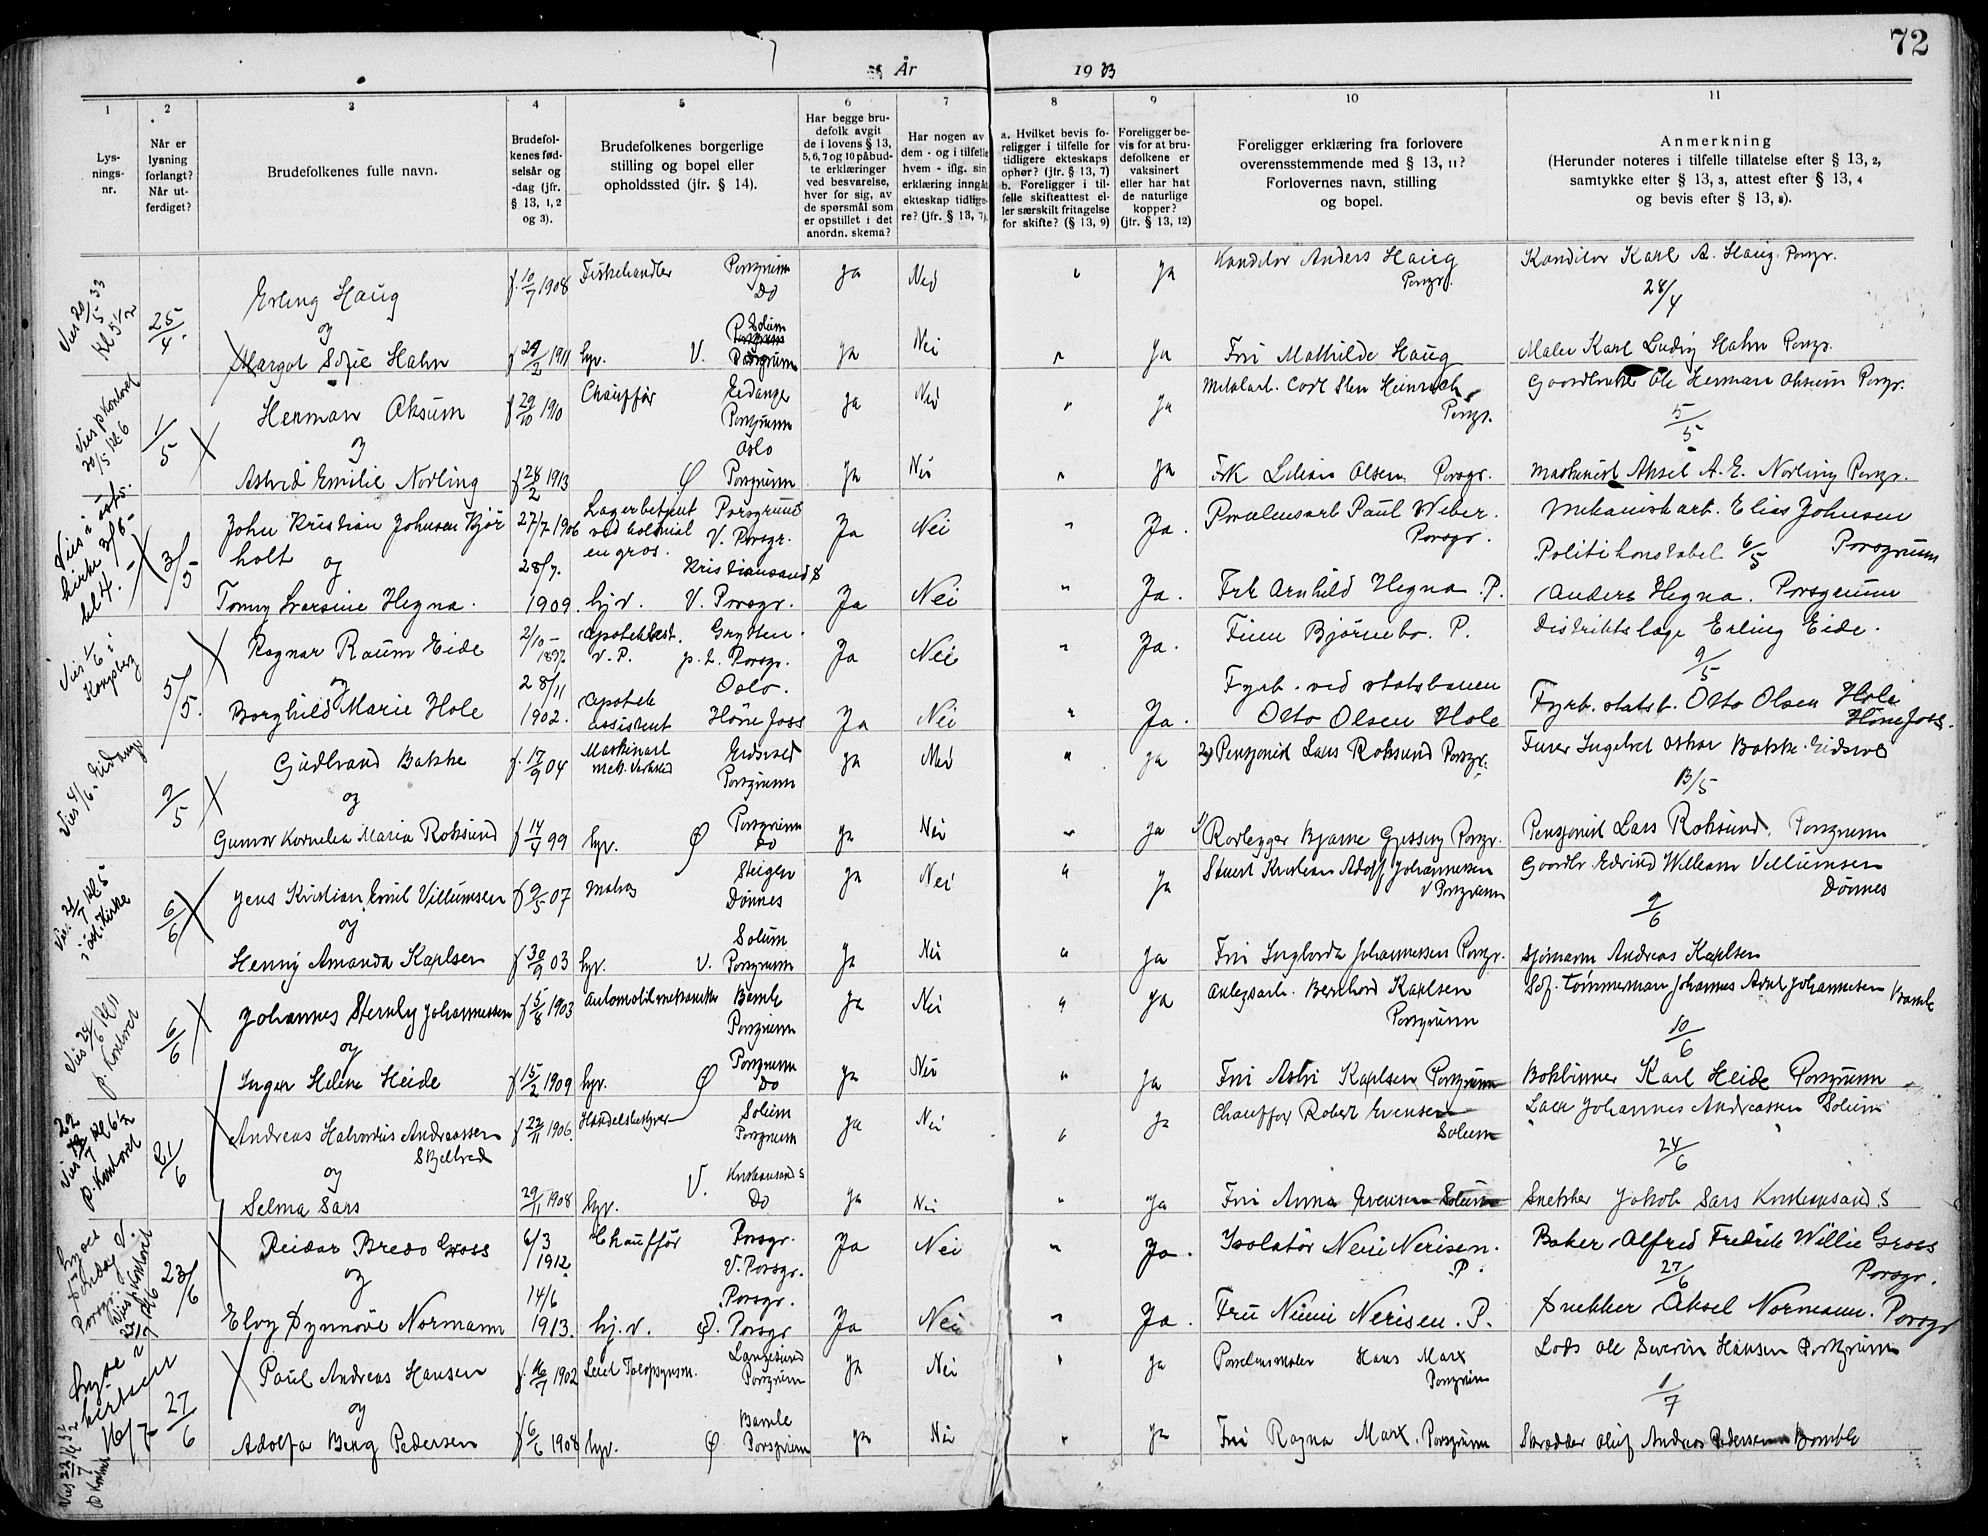 72
År 1933
1 2 3 4 5 6 7 8 9 10 11
Lys-
nings-
nr.
Når er
lysning
forlangt?
Når ut-
ferdiget?
Brudefolkenes fulle navn.
Brudefol-
kenes fød-
selsår og
-dag (jfr.
§ 13, 1, 2
og 3).
Brudefolkenes borgerlige
stilling og bopel eller
opholdssted (jfr. § 14).
Har begge bru-
defolk avgit
de i lovens § 13,
5, 6, 7 og 10 påbud-
te erklæringer
ved besvarelse,
hver for sig, av
de spørsmål som
er opstillet i det
anordn. skema?
Har nogen av
dem - og i tilfelle
hvem - iflg. sin
erklæring inngåt
ekteskap tidlige-
re? (jfr. § 13, 7).
a. Hvilket bevis fo-
religger i tilfelle for
tidligere ekteskaps
ophør? (jfr. § 13, 7)
b. Foreligger i til-
felle skifteattest el-
ler særskilt fritagelse
for skifte? (§ 13, 9)
Foreligger be-
vis for at bru-
defolkene er
vaksinert
eller har hat
de naturlige
kopper?
(jfr. § 13, 12)
Foreligger erklæring fra forlovere
overensstemmende med § 13, 11?
Forlovernes navn, stilling
og bopel.
Anmerkning
(Herunder noteres i tilfelle tillatelse efter § 13, 2,
samtykke efter § 13, 3, attest efter § 13, 4
og bevis efter § 13, 8).
Vies 20/5 33 Kl 5 1/2
25/4
Erling Haug f. 10/7 1908 Fiskehandler Porsgrunn Do Ja Nei " Ja Konditor Anders Haug Porsgr. Konditor Karl A. Haug. Porsgr.
28/4
og
Margot Sofie Hahn f 29/2 1911 hv. V. Solum Porsgrunn Ja Nei " Ja Fru Mathilde Haug Maler Karl Ludvig Hahn Porsgr.
Vies p Kontoret 20/5 kl 6
1/5
Herman Oksum f 29/10 1910 Chauffør Eidanger Porsgrunn Ja Nei " Ja Metalarb. Carl Sten Heinrich Porsgr. Gaardbruker Ole Herman Oksum Porsgr.
5/5
og
Astrid Emilie Norling f 28/2 1913 Ø Oslo Porsgrunn Ja Nei " Ja Frk Lilian Olsen. Porsgr. Maskinist Aksel A. E. Norling Porsgr.
Vies i østs. kirke 3/6 - kl 4.
3/5
John Kristian Johnsen Kjør
holt 27/7 1906 Lagerbetjent ved kolonial en gros. Porsgrunn V. Porsgr. Ja Nei " Ja. Porselensarb Paul Weber. Porsgr. Mekanisk arb. Elias Johnsen Porsgrunn
og
6/5
Tonny Svarsine Hegna. 28/7. 1909. hjv. Kristiansand S V. Porsgr. Ja Nei " Ja. Frk Arnhild Hegna. P. Politikonstabel Anders Hegna. Porsgrunn
Vies 1/6 i Kongsberg
5/5.
Ragnar Raum Eide 2/10 - 1897. Apotekbest. v. P. Grytten. p. t. Porsgr. Ja Nei " Ja. Finn Bjørnebo. P. Distriktslæge Erling Eide.
9/5
og
Borghild Marie Hole 28/11 1902. Apotek assistent Oslo. Hønefoss Ja Nei " Ja. Fyrb. ved statsbanen Otto Olsen Hole Fyrb. statsb. Otto Olsen Hole Hønefoss.
Vies 4/6. Eidanger
9/5
Gudbrand Bakke f. 17/9 04 Maskinarb mek. Verksted Eidsvold Porsgrunn Ja Nei " Ja 2) Pensjonist Lars Roksund Porsgr. Furer Ingebret Oskar Bakke. Eidsvold
13/5
og
Gunvor Kornelia Maria Roksund f 14/4 99 hv. Ø Porsgrunn Do Ja Nei " Ja 1) Rørlegger Bjarne Gjessing Porsgr. Pensjonist Lars Roksund. Porsgrunn
Vies 21/7 Kl 5 i øst. Kirke
6/6
Jens Kristian Emil Villumsen f 9/5 07 Matros Steigen Dønnes Ja Nei " Ja Stuert Kristian Adolf Johannessen V Porsgrunn Gaardbr. Edvind William Villumsen Dønnes
9/6
og
Henny Amanda Karlsen f 30/9 03 hv. V. Solum Porsgrunn Ja Nei " Ja Fru Ingborda Johannessen Porsgr. Sjømann Andreas Karlsen
Vies 24/6 Kl 11 p. Kontoret
6/6
Johannes Sternby Johannessen f 5/8 1903 Automobilmekaniker Bamle Porsgrunn Ja Nei " Ja Anlegsarb. Bernhard Karlsen Porsgrunn Sof. Tømmerman Johannes Arnt Johannessen Bamle
10/6
og
Inger Helene Heide f 15/2 1909 hv. Ø Porsgrunn Do Ja Nei " Ja Fru Astri Karlsen Porsgrunn Bokbinner Karl Heide Porsgrunn
Vies 22/7 Kl 6 1/2 p. Kontoret
21/6
Andreas Halvorius Andreassen
Skjelbred f 22/11 1906. Handelsbestyrer Solum Porsgrunn Ja Nei " Ja Chauffør Robert Evensen Solum Laer Johannes Andreassen Solum
24/6
og
Selma Sars 29/11 1908 hv. V. Kristiansand S Do Ja Nei " Ja Fru Anna Evensen Solum Snekker Jakob Sars Kristiansand S
Vies p. Kontoret 22/7 kl 6
23/6
Reidar Bredo Gross 6/3 1912. Chauffør Porsgr. V. Porsgr. Ja Nei " Ja. Isolatør Neui Nerisen. P. Baker Alfred Fredrik Willie Gross Porsgr.
27/6
og
Elvy Synnøve Normann 14/6 1913. hj.v. Ø. Porsgr. Porsgr Ja Nei " Ja. Fru Nenni Nerisen. P. Snekker Aksel Normann. Porsgr
16/7
27/6
Paul Andreas Hansen f. 16/7 1902 Porsgrunn Ja Nei " Ja Porselensmaler Hans Marx Porsgrunn Lods Ole Severin Hansen Porsgrunn
1/7
og
Adolfa Berg Pedersen f 6/6 1908 hv. Ø. Bamle Porsgrunn Ja Nei " Ja Fru Ragna Marx. Porsgrunn Skredder Oluf Andreas Pedersen Bamble
Vies 22/7 p Kontoret